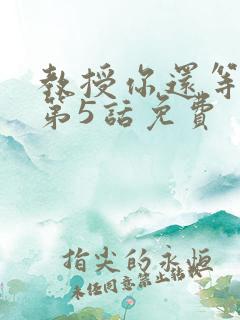 教授你還等
第5話免費
指尖的永恒
未任同意禁止转载